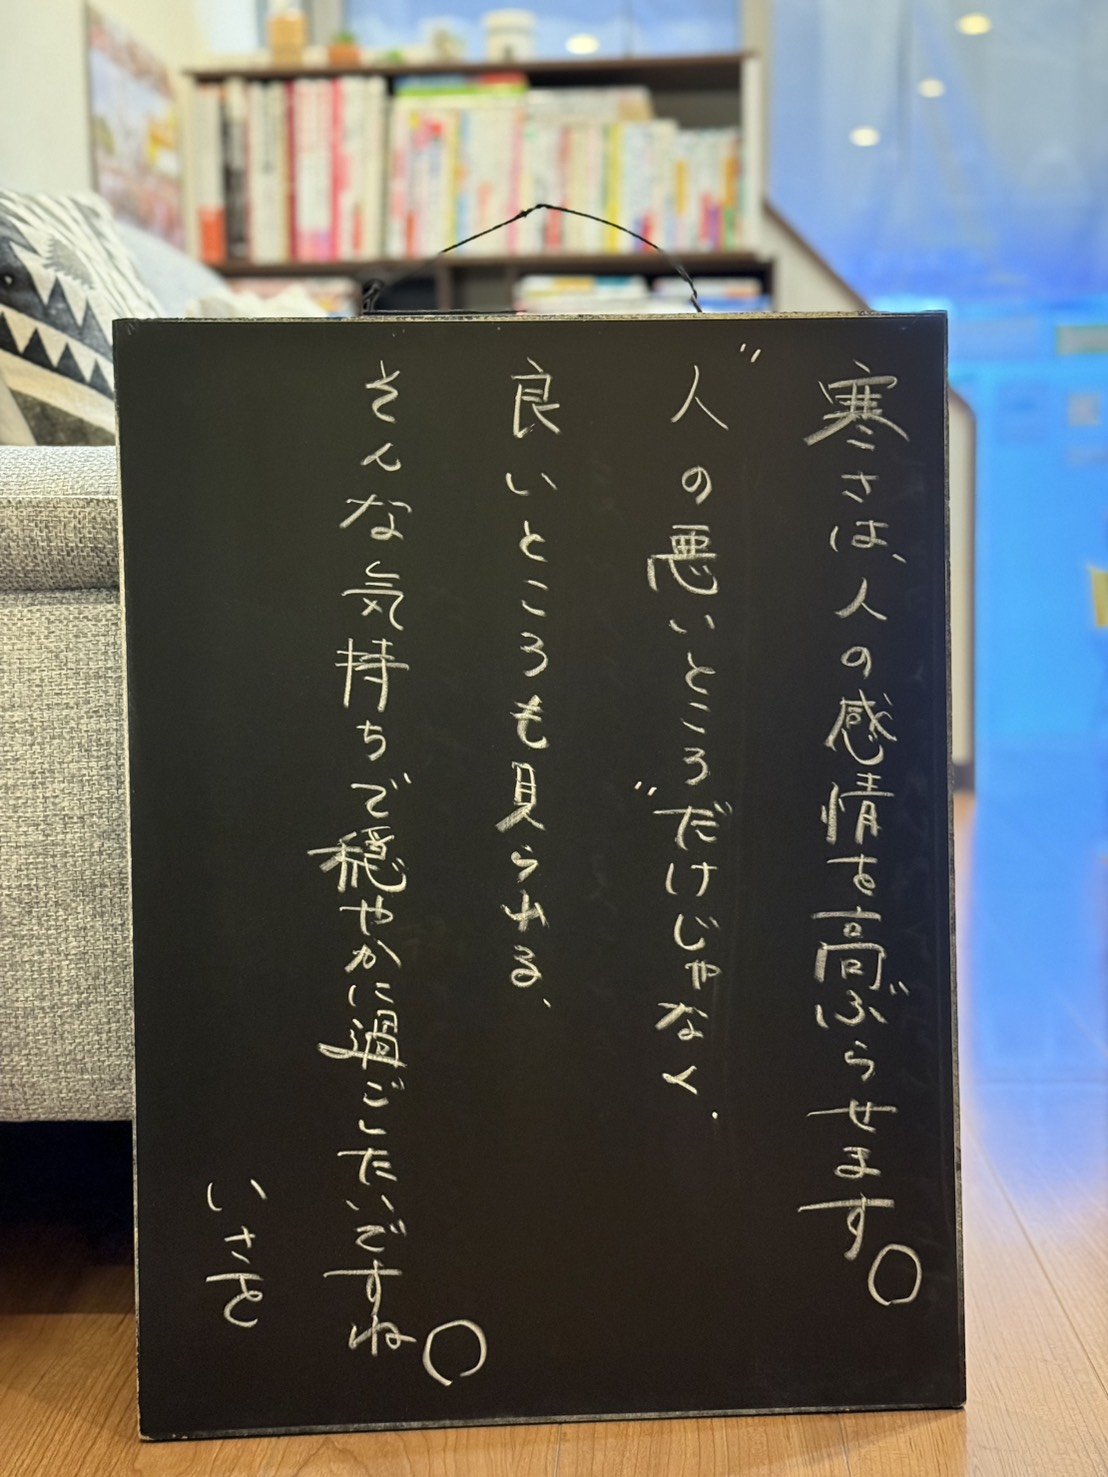 寒さは、人の感情を高ぶらせます。
"人の悪いところ"だけじゃなく、
良いところも見られる、
そんな気持ちで穏やかに過ごしたいですね。
いさを